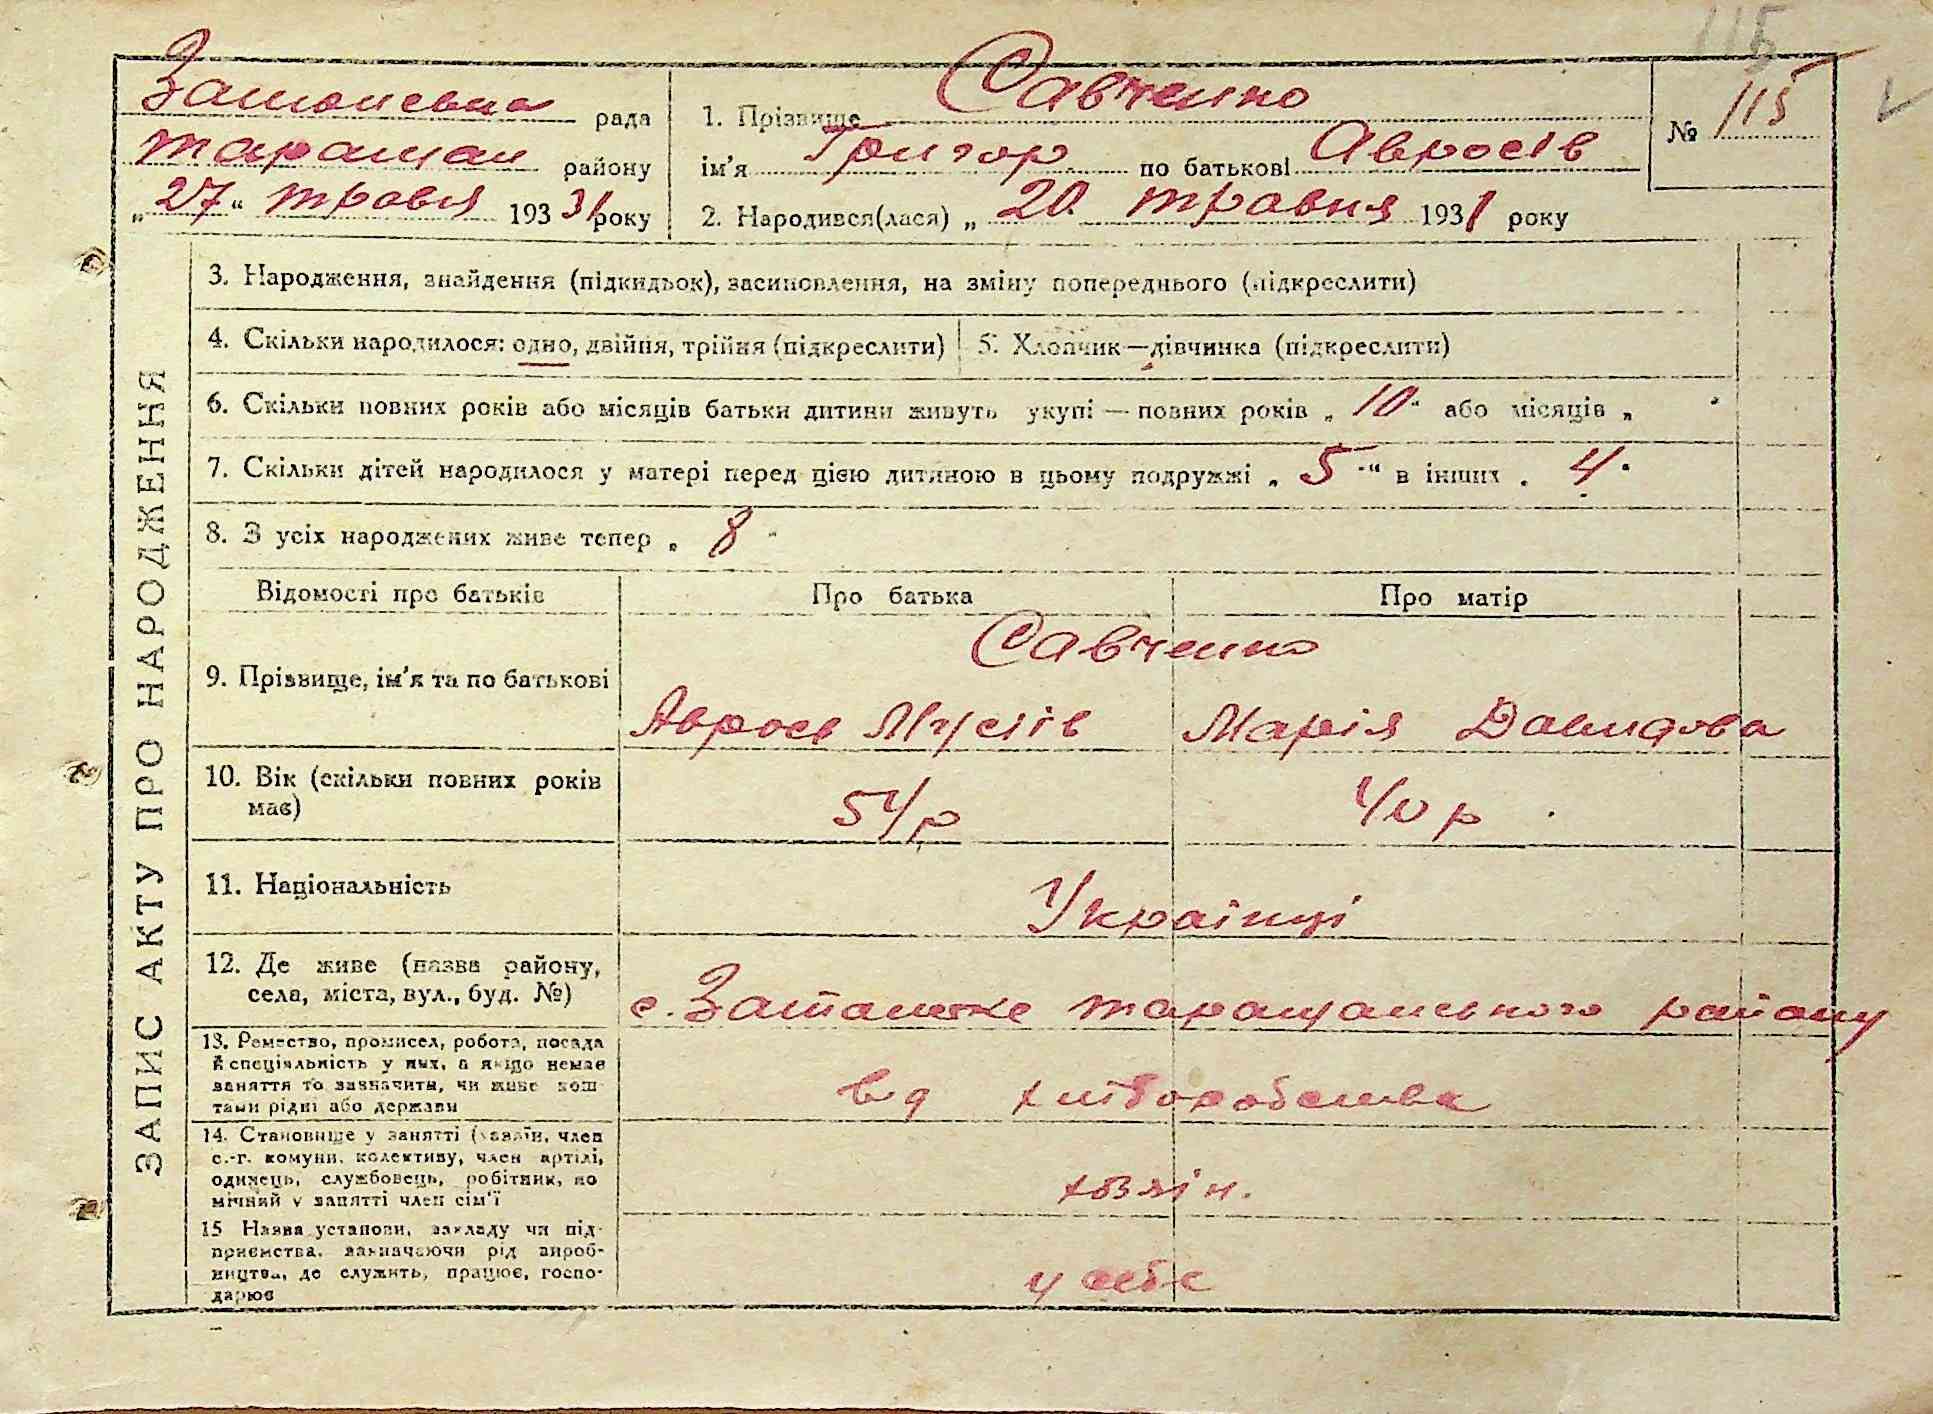 115
Затонська рада
Таращан району
„27“ травня 193 31 року
1. Прізвище Савченко
ім'я Григор по батькові Авросів
2. Народився(лася) „ 20 травня 1931 року
№ 115
ЗАПИС АКТУ ПРО НАРОДЖЕННЯ
3. Народження, знайдення (підкидьок), засиновлення, на зміну попереднього (підкреслити)
4. Скільки народилося: одно, двійня, трійня (підкреслити)
5. Хлопчик—дівчинка (підкреслити)
6. Скільки повних років або місяців батьки дитини живуть укупі — повних років „ 10 “ або місяців „
7. Скільки дітей народилося у матері перед цією дитиною в цьому подружжі „ 5 “ в інших „ 4 “
8. З усіх народжених живе тепер „ 8 “
Відомості про батьків Про батька Про матір
9. Прізвище, ім'я та по батькові
Савченко
Аврось Мусіїв Марія Давидова
10. Вік (скільки повних років
має)
54 р 40 р
11. Національність
Українці
12. Де живе (назва району,
села, міста, вул., буд. №)
с. Таращанського району
13. Ремество, промисел, робота, посада
й спеціяльність у них, а якщо немає
заняття то зазначити, чи живе кош-
тами рідні або держави
від хліборобства
14. Становище у занятті (хазаїн, член
с.-г. комуни, колективу, член артілі,
одинець, службовець, робітник, по
мічний у занятті член сім'ї
хозяїн.
15 Назва установи, закладу чи під-
приємства, зазначаючи рід вироб-
ництва, де служить, працює, госпо-
дарює
у себе